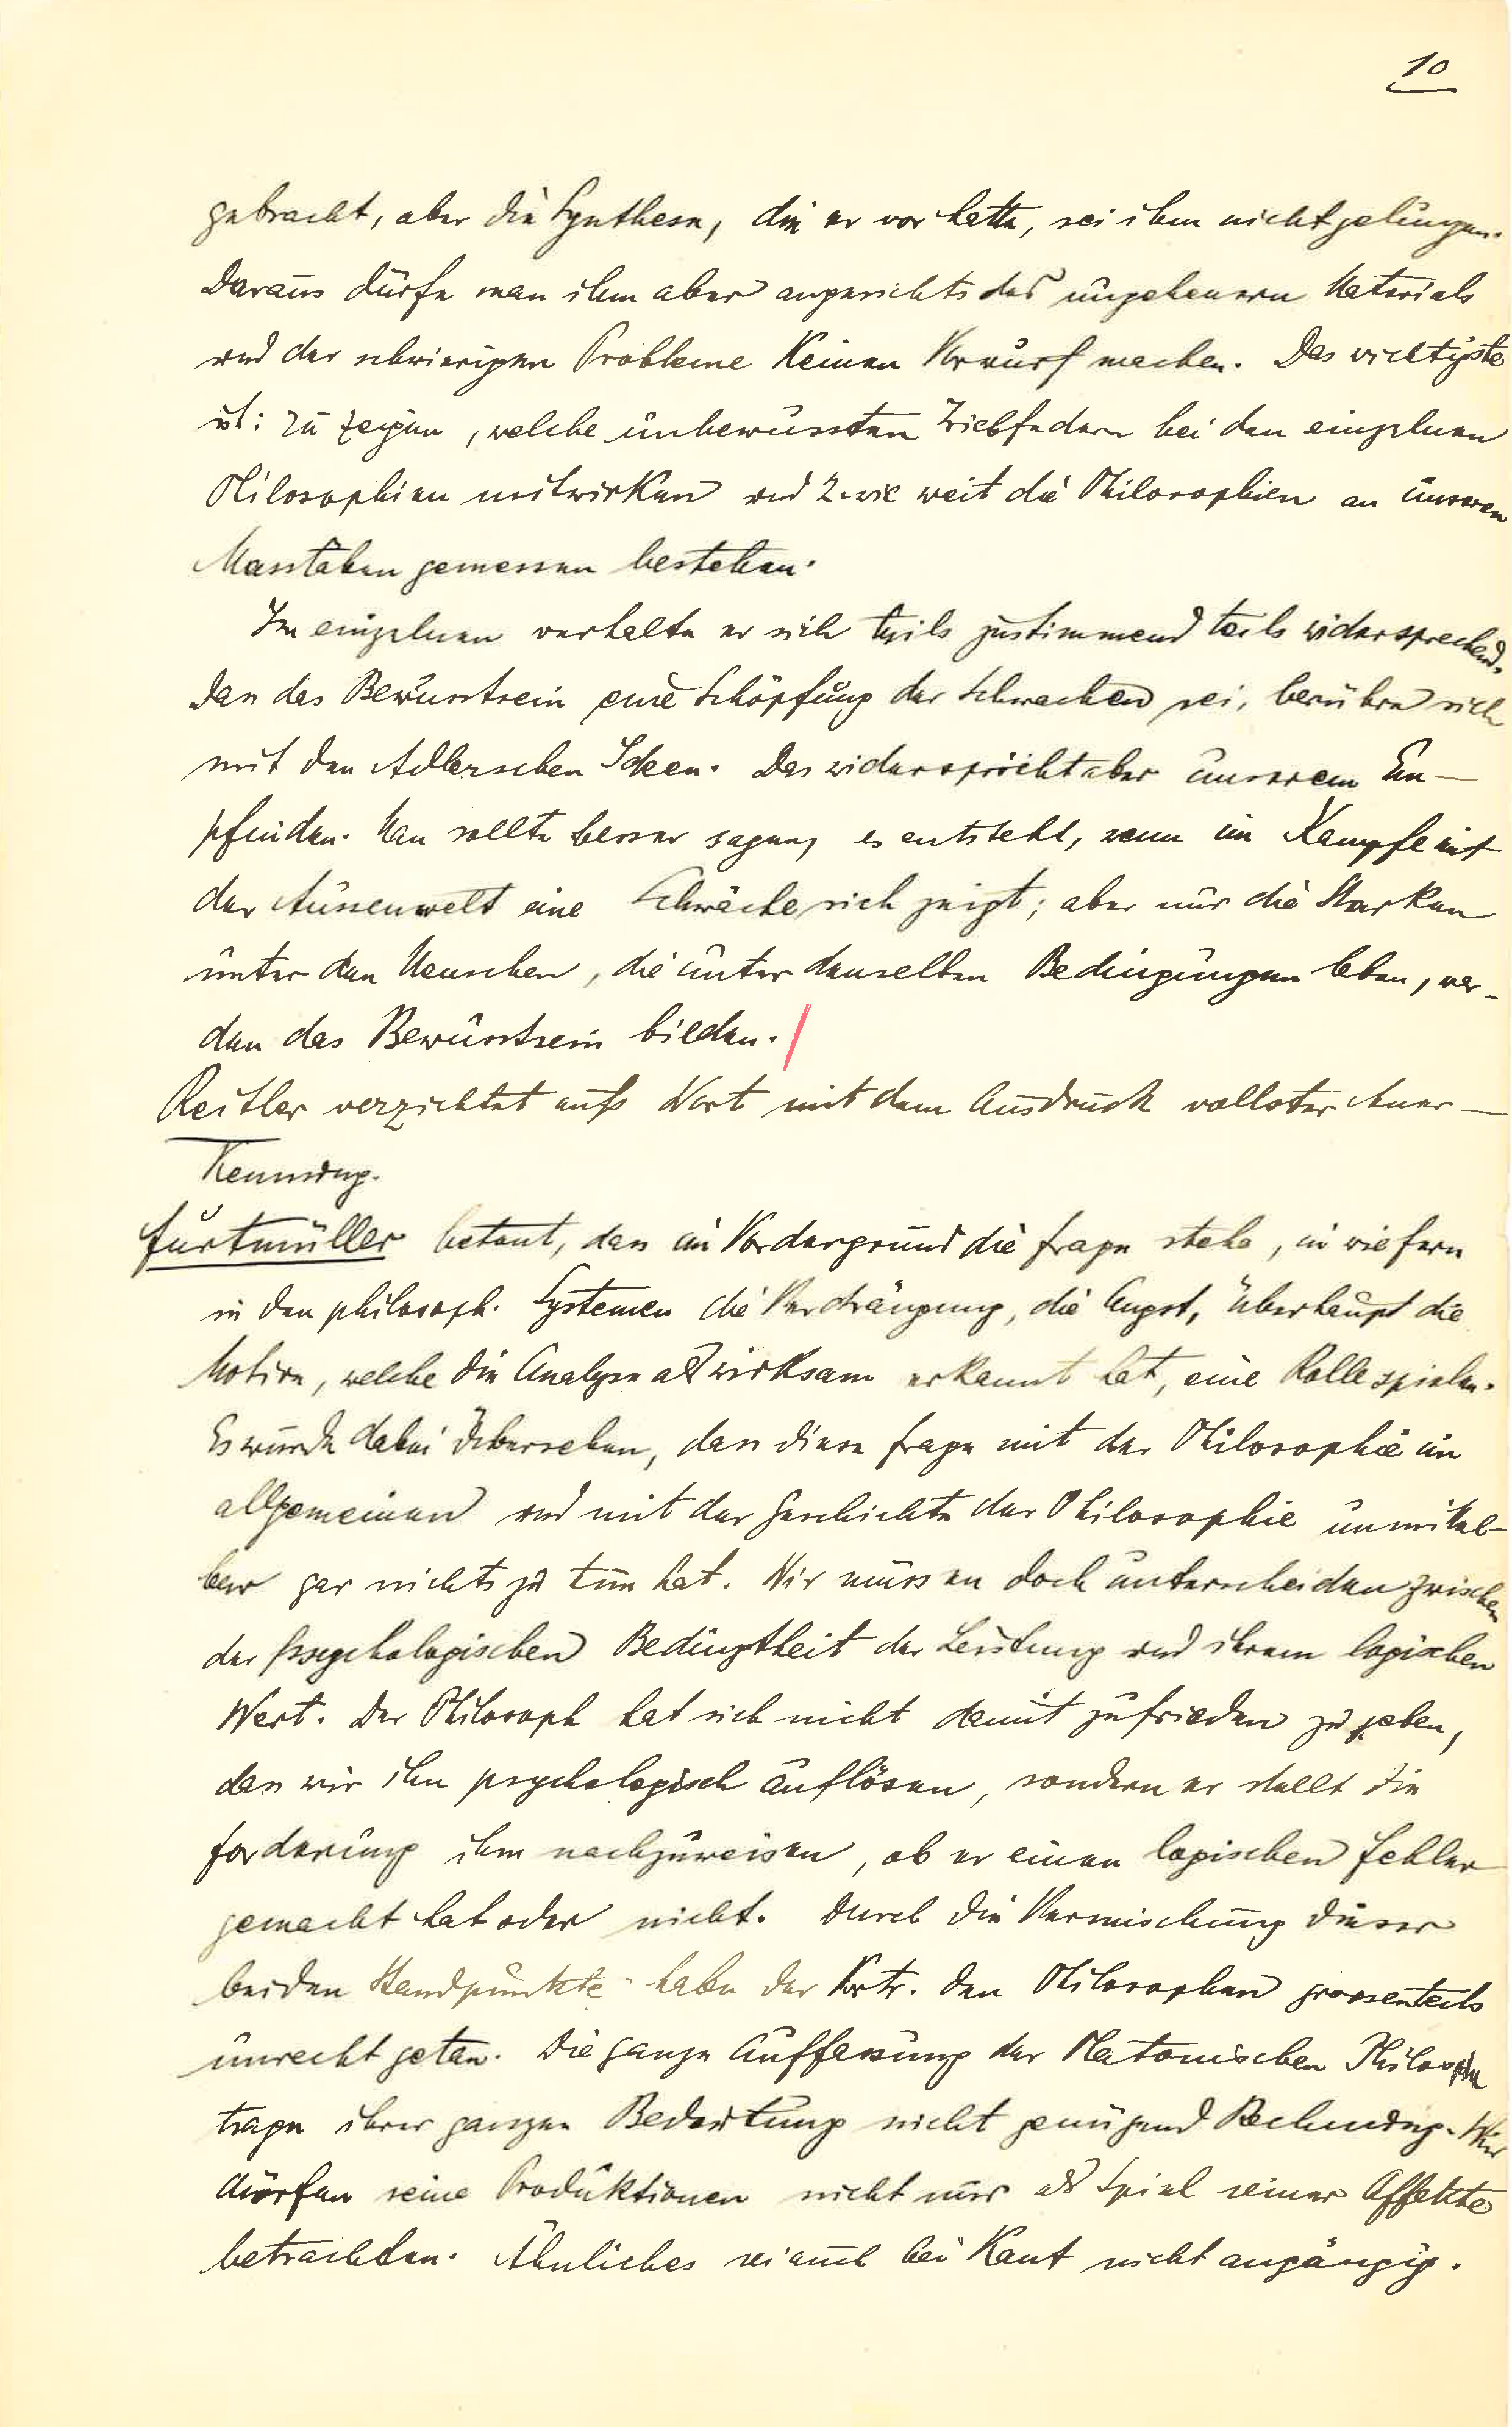 10
gebracht, aber die Synthese, die er vor hatte, sei ihm nicht gelungen.
Daraus dürfe man ihm aber angesichts des ungeheuern Materials
und der schwierigen Probleme keinen Vorwurf machen. Das wichtigste
ist: zu zeigen, welche unbewussten Triebfedern bei den einzelnen
Philosophien mitwirken und 2. wie weit die Philosophien an unseren
Masstäben gemessen bestehen.
Im einzelnen verhalte er sich teils zustimmend teils widersprechend.
Dass das Bewusstsein eine Schöpfung der Schwachen sei, berühre sich
mit den Adlerschen Ideen. Das widerspricht aber unserem Em-
pfinden. Man sollte besser sagen, es entsteht, wenn im Kampfe mit
der Aussenwelt eine Schwäche sich zeigt; aber nur die Starken
unter den Menschen, die unter denselben Bedingungen leben, wer-
den das Bewusstsein bilden. /
Reitler verzichtet aufs Wort mit dem Ausdruck vollster Aner-
kennung.
Furtmüller betont, dass im Vordergrund die Frage stehe, in wiefern
in den philosoph. Systemen die Verdrängung, die Angst, überhaupt die
Motive, welche die Analyse als wirksam erkannt hat, eine Rolle spielen.
Es wurde dabei übersehen, dass diese Frage mit der Philosophie im
allgemeinen und mit der Geschichte der Philosophie unmittel-
bar gar nichts zu tun hat. Wir müssen doch unterscheiden zwischen
der psychologischen Bedingtheit der Leistung und ihrem logischen
Wert. Der Philosoph hat sich nicht damit zufrieden zu geben,
dass wir ihn psychologisch auflösen, sondern er stellt die
Forderung ihm nachzuweisen, ob er einen logischen Fehler
gemacht hat oder nicht. Durch die Vermischung dieser
beiden Standpunkte habe der Vortr. den Philosophen grossenteils
unrecht getan. Die ganze Auffassung der Platonischen Philosophie
trage ihrer ganzen Bedeutung nicht genügend Rechnung. Wir
dürfen seine Produktionen nicht nur als Spiel seiner Affekte
betrachten. Ähnliches sei auch bei Kant nicht angängig.